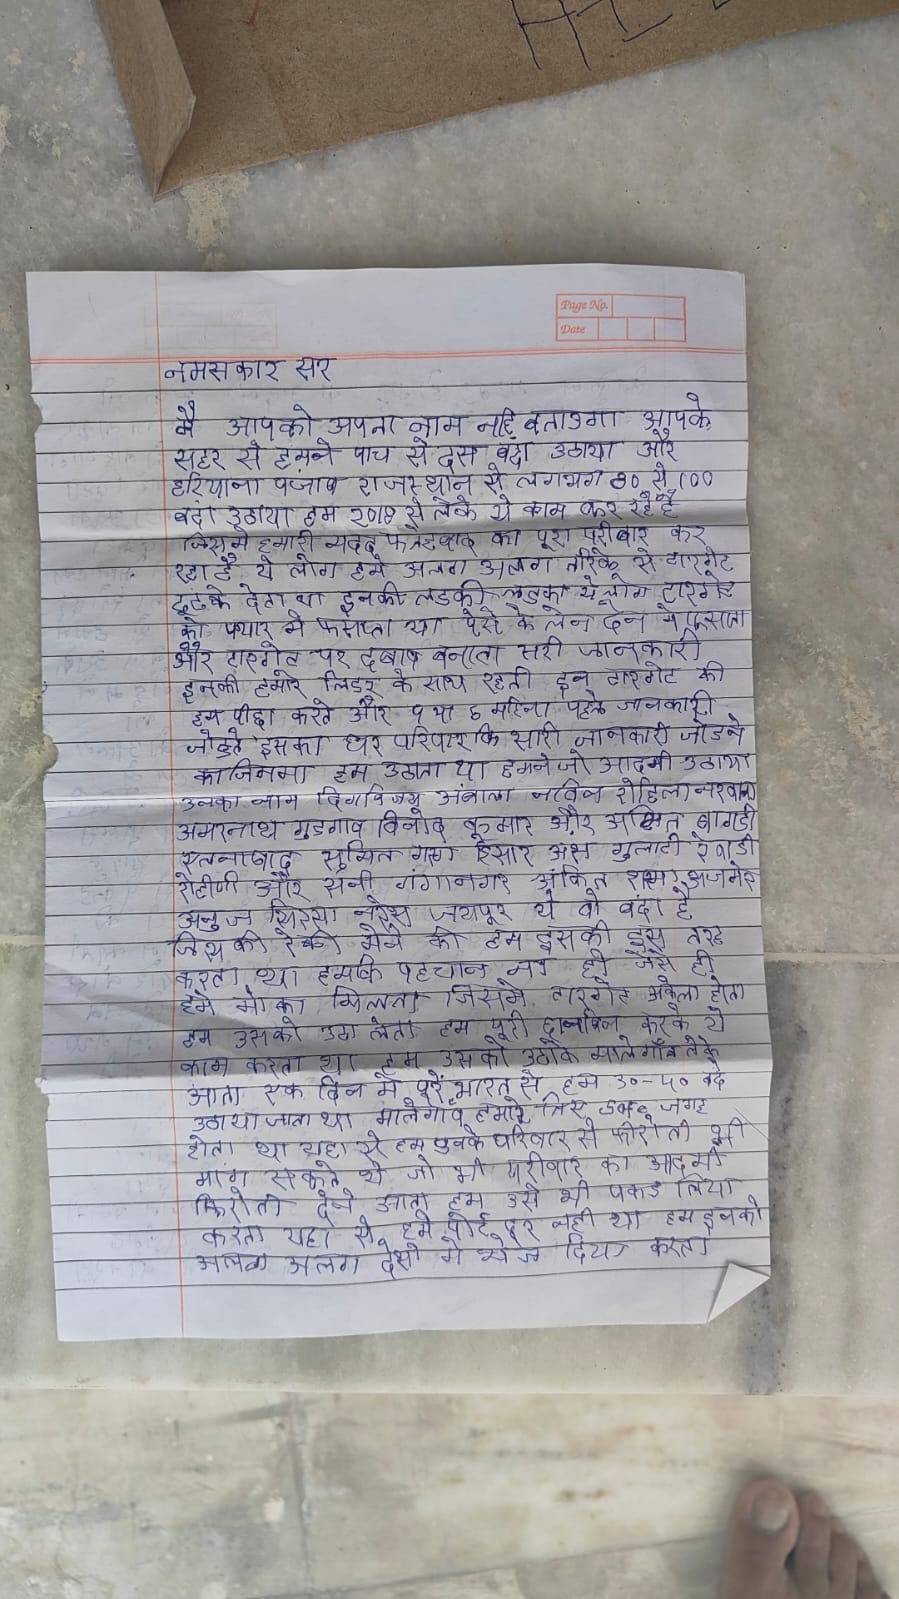 Page No.
Date
नमसकार सर
मै आपको अपना नाम नहि बताउगा आपके
सहर से हमने पाच से दस बंदा उठाया और
हरियाना पंजाब राजस्थान से लगभग 80 से 100
बंदा उठाया हम 2018 से लेके ये काम कर रहे है
जिसमे हमारी मदद फतेहबाद का पूरा परीबार कर
रहा है ये लोग हमे अलग अलग तरिके से टारगेट
ढुढके देता था इनकी लडकी लडका ये लोग टारगेट
को पयार मे फसाता या पैसे के लेन देन मे फसाता
और टारगेट पर दबाब बनाता सरी जानकारी
इनकी हमारे लिडर के साथ रहती इन टारगेट की
हम पीछा करते और 5 या 6 महिना पहले जानकारी
जोडते इसका घर परिवार कि सारी जानकारी जोडने
का जिममा हम उठाता था हमने जो आदमी उठाया
उनका नाम दिगविजय अंबाला नविन रोहिला नरवाना
अमरनाथ गुडगाव विनोद कुमार और अमित बागडी
रतनाबाद सुमित गरग हिसार अंश गुलाटी रेवाडी
रोहीणी और सनी गंगानगर अंकित शरमा अजमेर
अनुज सिरसा नरेस जयपूर ये वो बंदा है
जिस की रेकी मेने की हम इसको इस तरह
करता था हमकि पहचान ना हो जैसे ही
हमे मोका मिलता जिसमे टारगेट अकेला होता
हम उसको उठा लेता हम पूरी छानबिन करके ये
काम करता था हम उसको उठाके मालेगाँव लेके
आता एक दिन मे पूरे भारत से हम 30-40 बंदे
उठाया जाता था मालेगाँव हमारे लिए safe जगह
होता था यहा से हम उनके परिवार से फीरोती भी
मांग सकते थे जो भी परीवार का आदमी
फिरोती देने आता हम उसे भी पकड लिया
करता यहा से हमे कोई डर नही था हम इनको
अलग अलग देशो मे भेज दिया करता